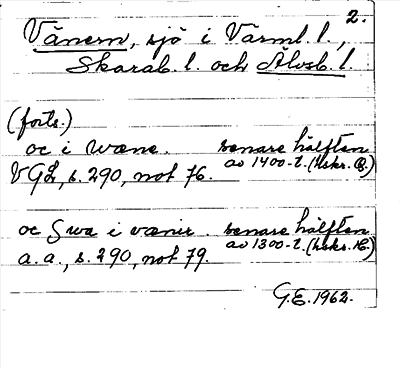 2.
Vänern, sjö i Värml. l.,
Skarab. l. och Älvsb. l.
(forts.)
oc i wæne. senare hälften
av 1400-t. (hskr. B.)
VGL, s. 290, not 76.
oc Swa i wænir. senare hälften
av 1300-t. (hskr. E)
a. a., s. 290, not 79.
G.E. 1962.